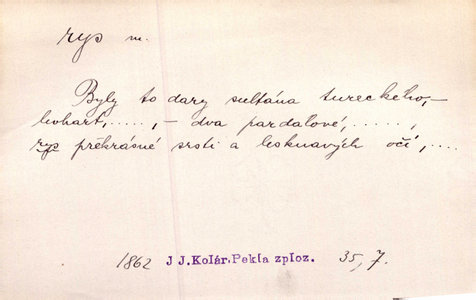 rys m.
Byly to dary sultána tureckého,–
levhart, ....., – dva pardalové, .....,
rys překrásné srsti a lesknavých očí, ....
1862 J J.Kolár.Pekla zploz. 35, 7.